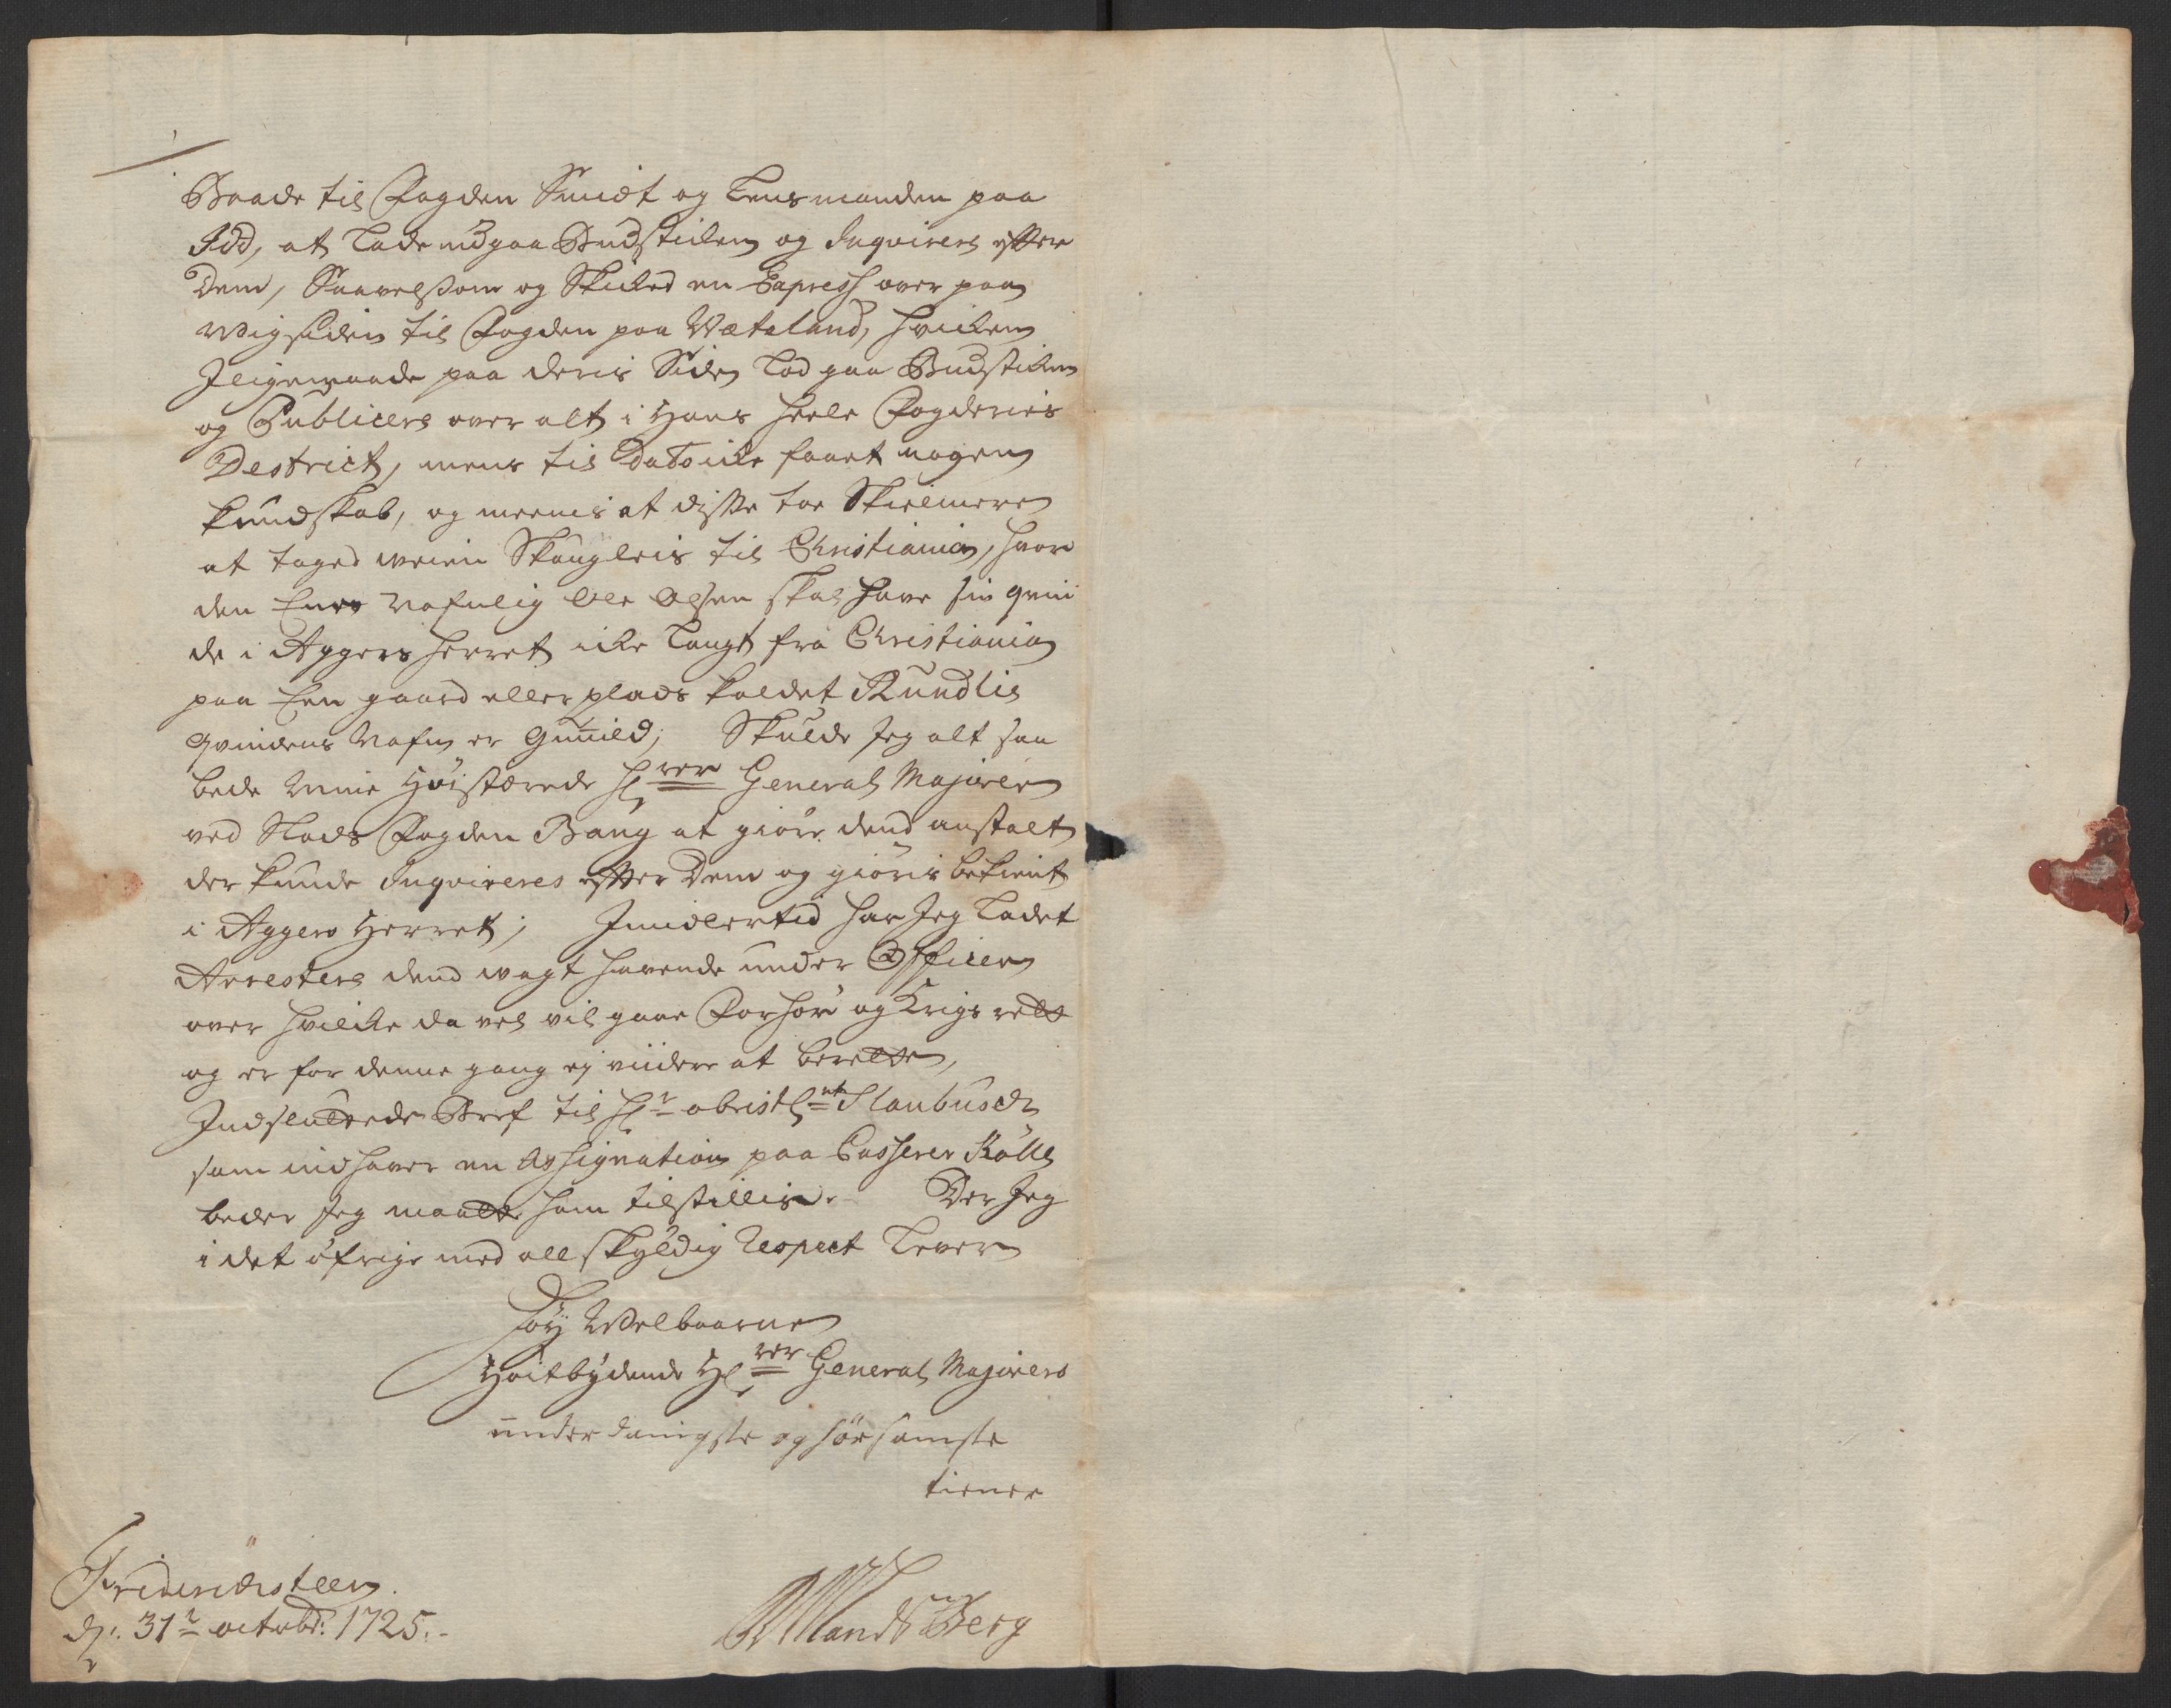 Baade til Fogden Smidt og Lensmanden paa
Idd, at Lade udgaa Budstiken og Inqvirere efter
Dem, Saavelsom og Skiked en Express over paa
Wigsiden til Fogden paa Wæteland, hviken
Iligemaade paa deris Side Lod gaa Budstiken
og Publicere over alt i Hans heele Fogderies
Destrict, mens til Dato icke faaet nogen
kundskab, og meenis at disse toe Skielmere
at taged weien Skougleis til Christiania, hvor
den Ene Nafnlig Ole Olsen skal have sin qvin
de i Aggers herret icke Langt fra Christiania
paa Een gaard eller plads kaldet Rundlie
qvindens Nafn er Gunild; Skulde Jeg alt saa
bede Min Høistærede H rer General Majoren
ved Slods Fogden Bang at giøre dend anstalt
der kunde Inqvireres efter Dem og giøris bekient
i Aggers Herret; Imidlertid har Jeg Ladet
Arrestere dend wagt havende under Officer
over hvilke da vel vil gaae Forhør og Krigs rett
og er for denne gang ej viidere at berette,
Indsluttede Bref til Hr obristl nt Staubusch
som indhaver en Assignation paa Casserer Kølle
beder Jeg maatte ham tilstillis. Der Jeg
i det øfrige med all skyldig Respect Lever
Høy Welbaarne
Høitbydende H rer General Majorens
underdanigste og hørsomste
tiener
Friderichsteen.
d. 31r octobr: 1725.
Landsberg